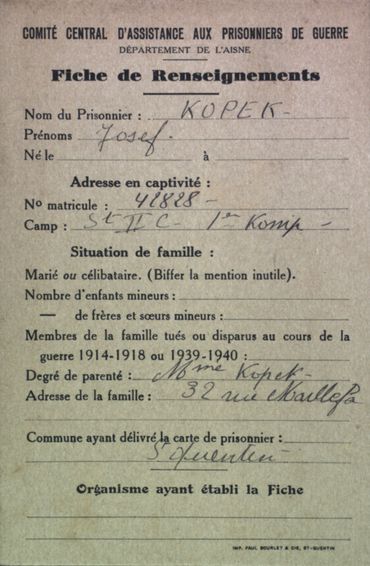 COMITÉ CENTRAL D'ASSISTANCE AUX PRISONNIERS DE GUERRE
DÉPARTEMENT DE L'AISNE
Fiche de Renseignements
Nom du Prisonnier : KOPEK -
Prénoms Josef.
Né le à
Adresse en captivité :
No matricule : 42828 -
Camp : St II C - 1er Komp -
Situation de famille :
Marié ou célibataire. (Biffer la mention inutile).
Nombre d'enfants mineurs :
— de frères et sœurs mineurs :
Membres de la famille tués ou disparus au cours de la
guerre 1914-1918 ou 1939-1940 :
Degré de parenté : Mme Kopek -
Adresse de la famille : 32 rue
Commune ayant délivré la carte de prisonnier :
St Quentin
Organisme ayant établi la Fiche
IMP. PAUL BOURLET & CIE, ST-QUENTIN